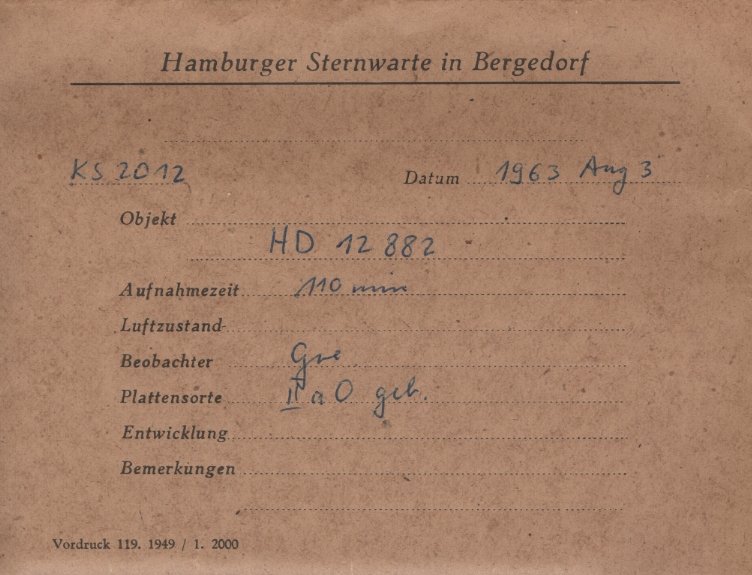 Hamburger Sternwarte in Bergedorf
KS 2012 Datum 1963 Aug 3
Objekt
HD 12 882
Aufnahmezeit 110 min
Luftzustand
Beobachter Gre
Plattensorte II a O geb.
Entwicklung
Bemerkungen
Vordruck 119. 1949 / 1. 2000